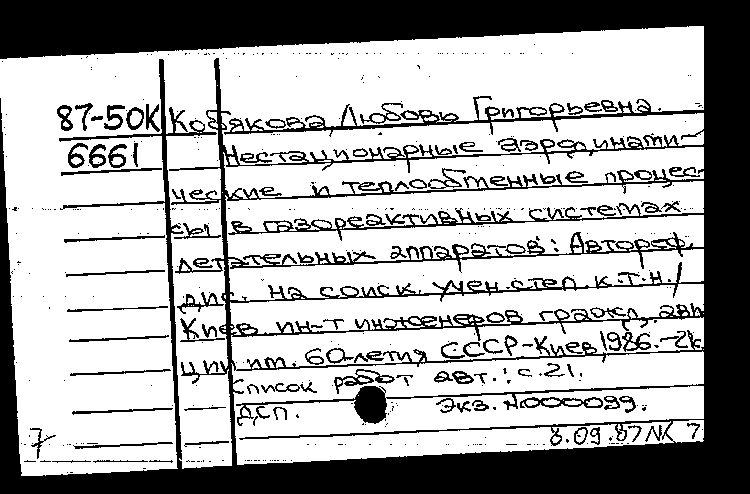 87-50К Кобякова, Любовь Григорьевна.
6661 Нестационарные аэродинами-
ческие и теплообменные процес-
сы в газореактивных системах
летательных аппаратов: Автореф.
дис. на соиск. учен. степ. к.т.н. /
Киев. ин-т инженеров гражд. авиа
ции им. 60-летия СССР-Киев, 1986.-21с.
Список работ авт.: с.21.
ДСП. Экз. N000099.
7 8.09.87 NK 7